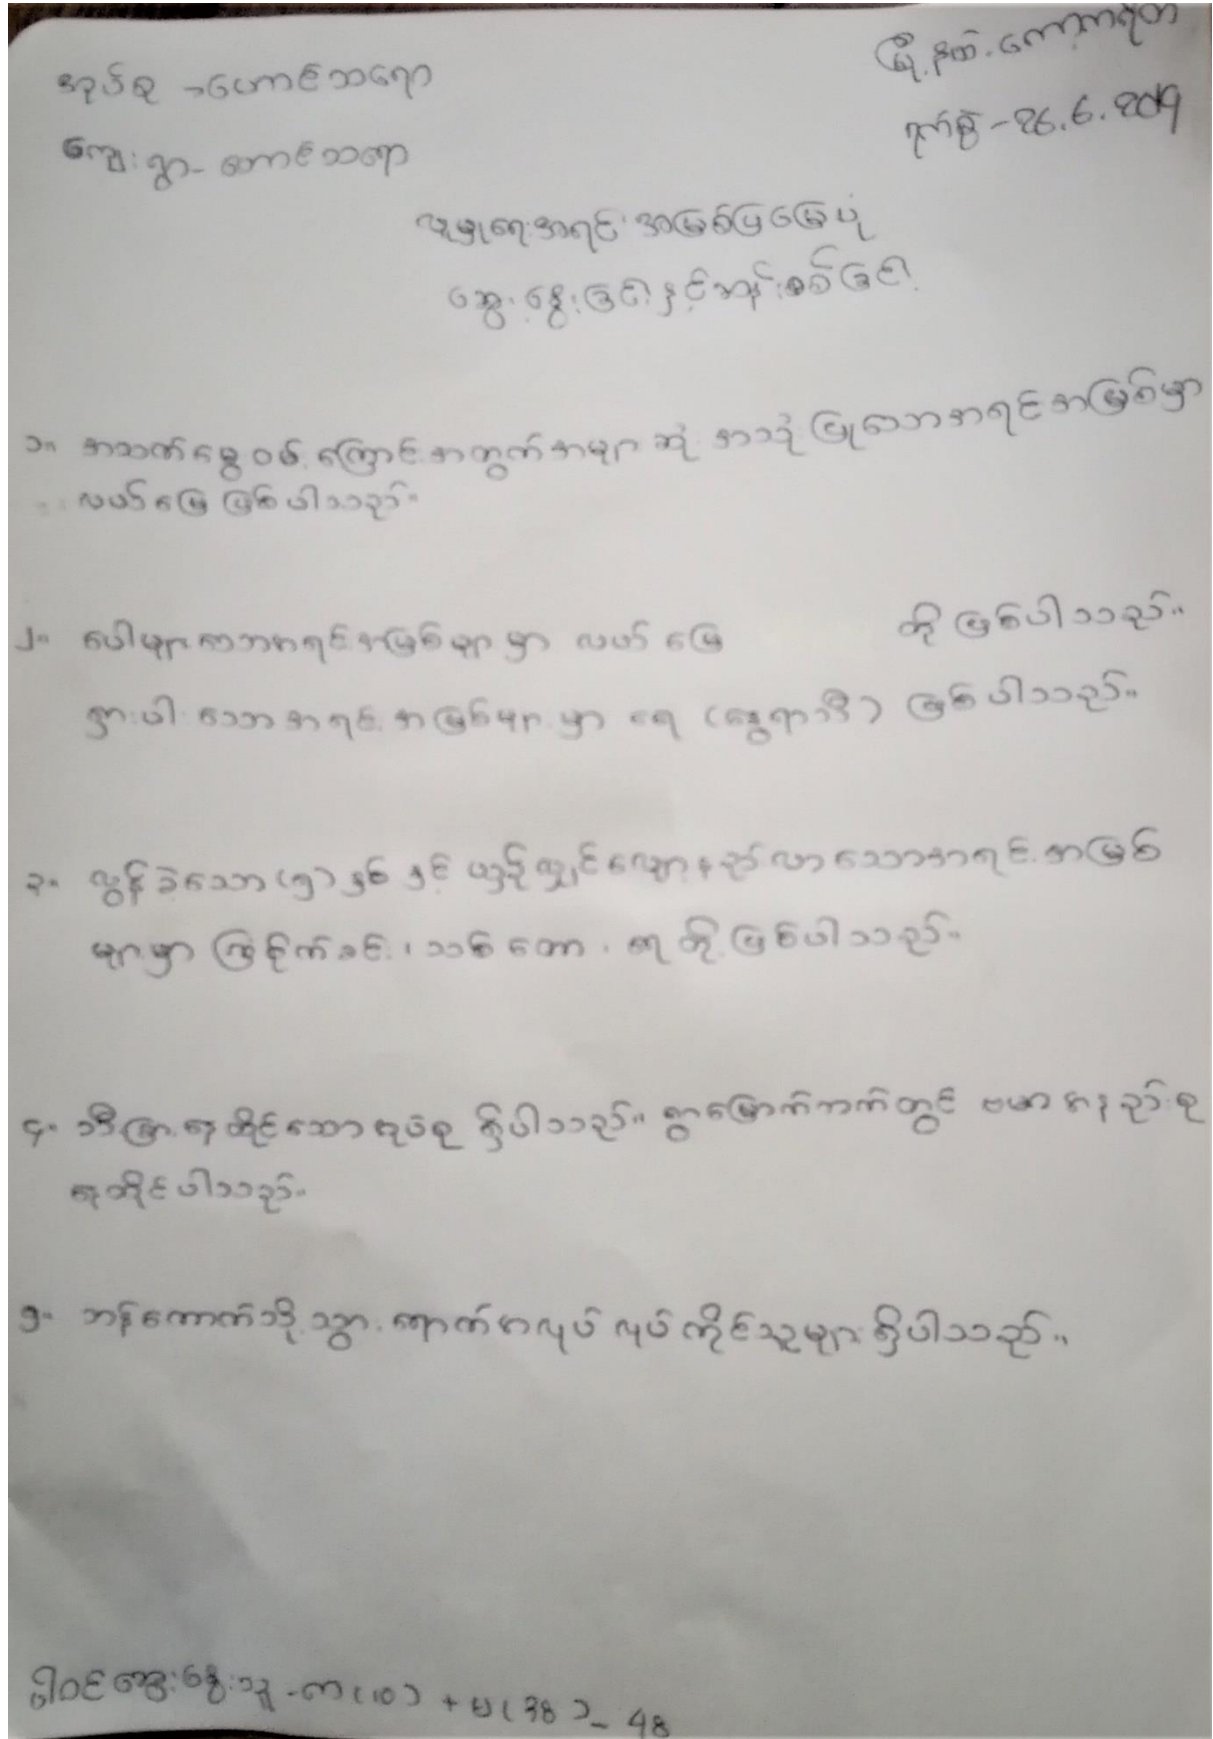 အုပ်စု - ဟောင်သရော
မြို့နယ်. ကော့ကရိတ်
ကျေးရွာ - ဟောင်သရော
ရက်စွဲ - 26.6.2019
လူမှုရေးအရင်းအမြစ်ပြမြေပုံ
ဆွေးနွေးခြင်းနှင့်ဆန်းစစ်ခြင်း
၁။ အသက်မွေးဝမ်းကြောင်းအတွက် အများဆုံး အသုံးပြုသောအရင်းအမြစ်မှာ
လယ်မြေ ဖြစ်ပါသည်။
၂။ ပေါများသောအရင်းအမြစ်များမှာ လယ်မြေ တို့ဖြစ်ပါသည်။
ရှားပါးသောအရင်းအမြစ်များမှာ ရေ (နွေရာသီ) ဖြစ်ပါသည်။
၃။ လွန်ခဲ့သော (၅) နှစ်နှင့် ယှဉ်လျှင်လျော့နည်းလာသောအရင်းအမြစ်
များမှာ ကြိုက်ခင်း၊ သစ်တော၊ ရေ တို့ဖြစ်ပါသည်။
၄။ သီးခြားနေထိုင်သောအုပ်စု ရှိပါသည်။ ရွာမြောက်ဘက်တွင် ဗမာအနည်းစု
နေထိုင်ပါသည်။
၅။ ဘန်ကောက်သို့သွားရောက်အလုပ်လုပ်ကိုင်သူများရှိပါသည်။
ပါဝင်ဆွေးနွေးသူ - ကျား (10) + မ (38) - 48